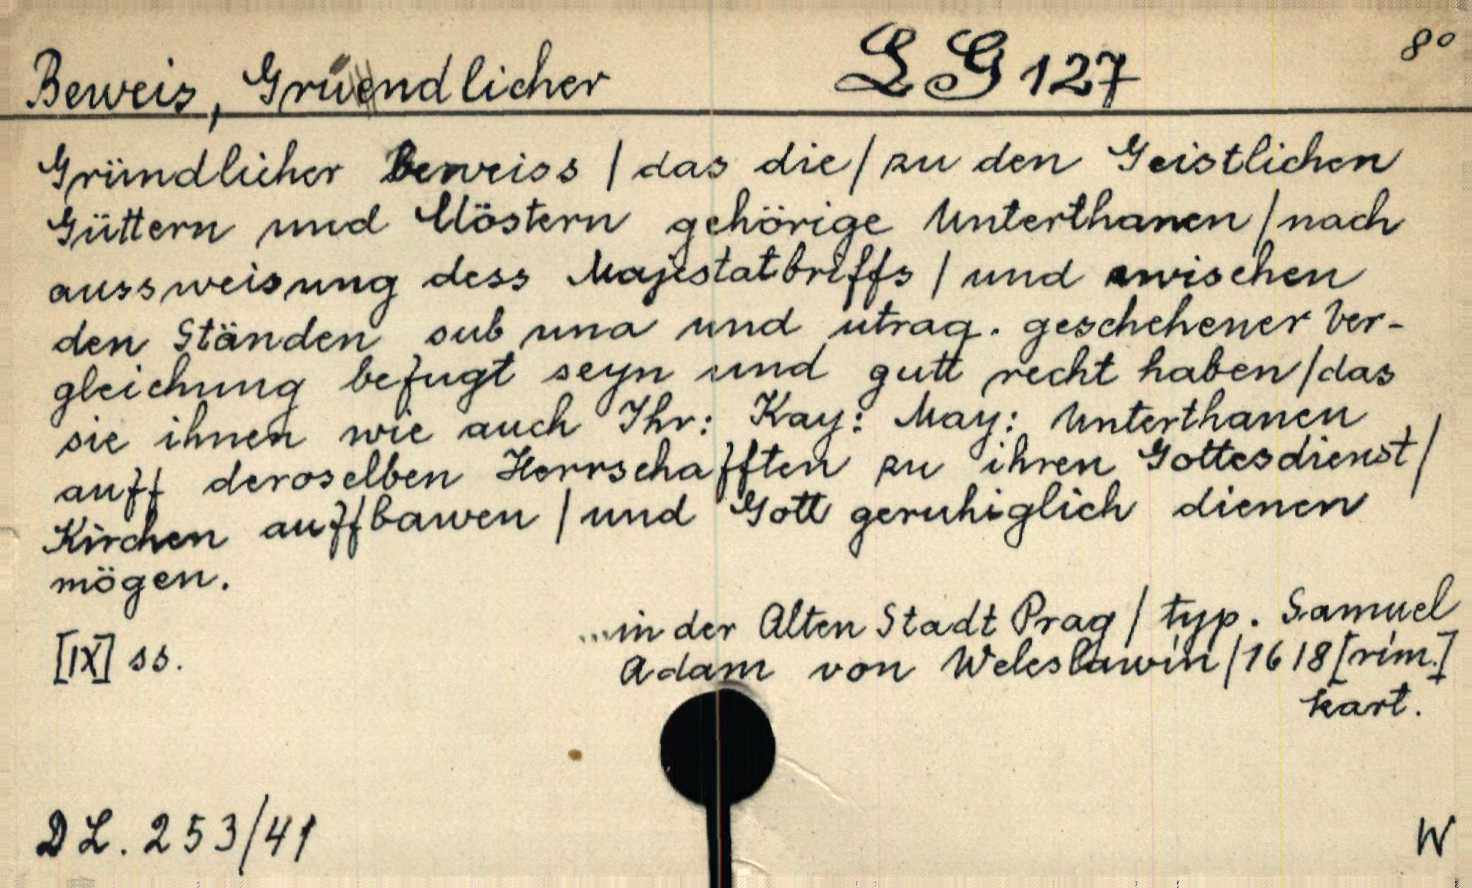 Beweis, Gruendlicher LG 127 8°
Gründlicher Beweiss / das die / zu den Geistlichen
Güttern und Clöstern gehörige Unterthanen / nach
aussweisung dess Majestatbriffs / und zwischen
den Ständen sub una und utraq. geschehener Ver-
gleichung befugt seyn und gutt recht haben / das
sie ihnen wie auch Ihr: Kay: May: Unterthanen
auff deroselben Herrschafften zu ihren Gottesdienst /
Kirchen auffbawen / und Gott geruhiglich dienen
mögen.
...in der Alten Stadt Prag / typ. Samuel
[IX] ss. Adam von Weleslawin / 1618 [rim.]
kart.
DL. 253/41 W